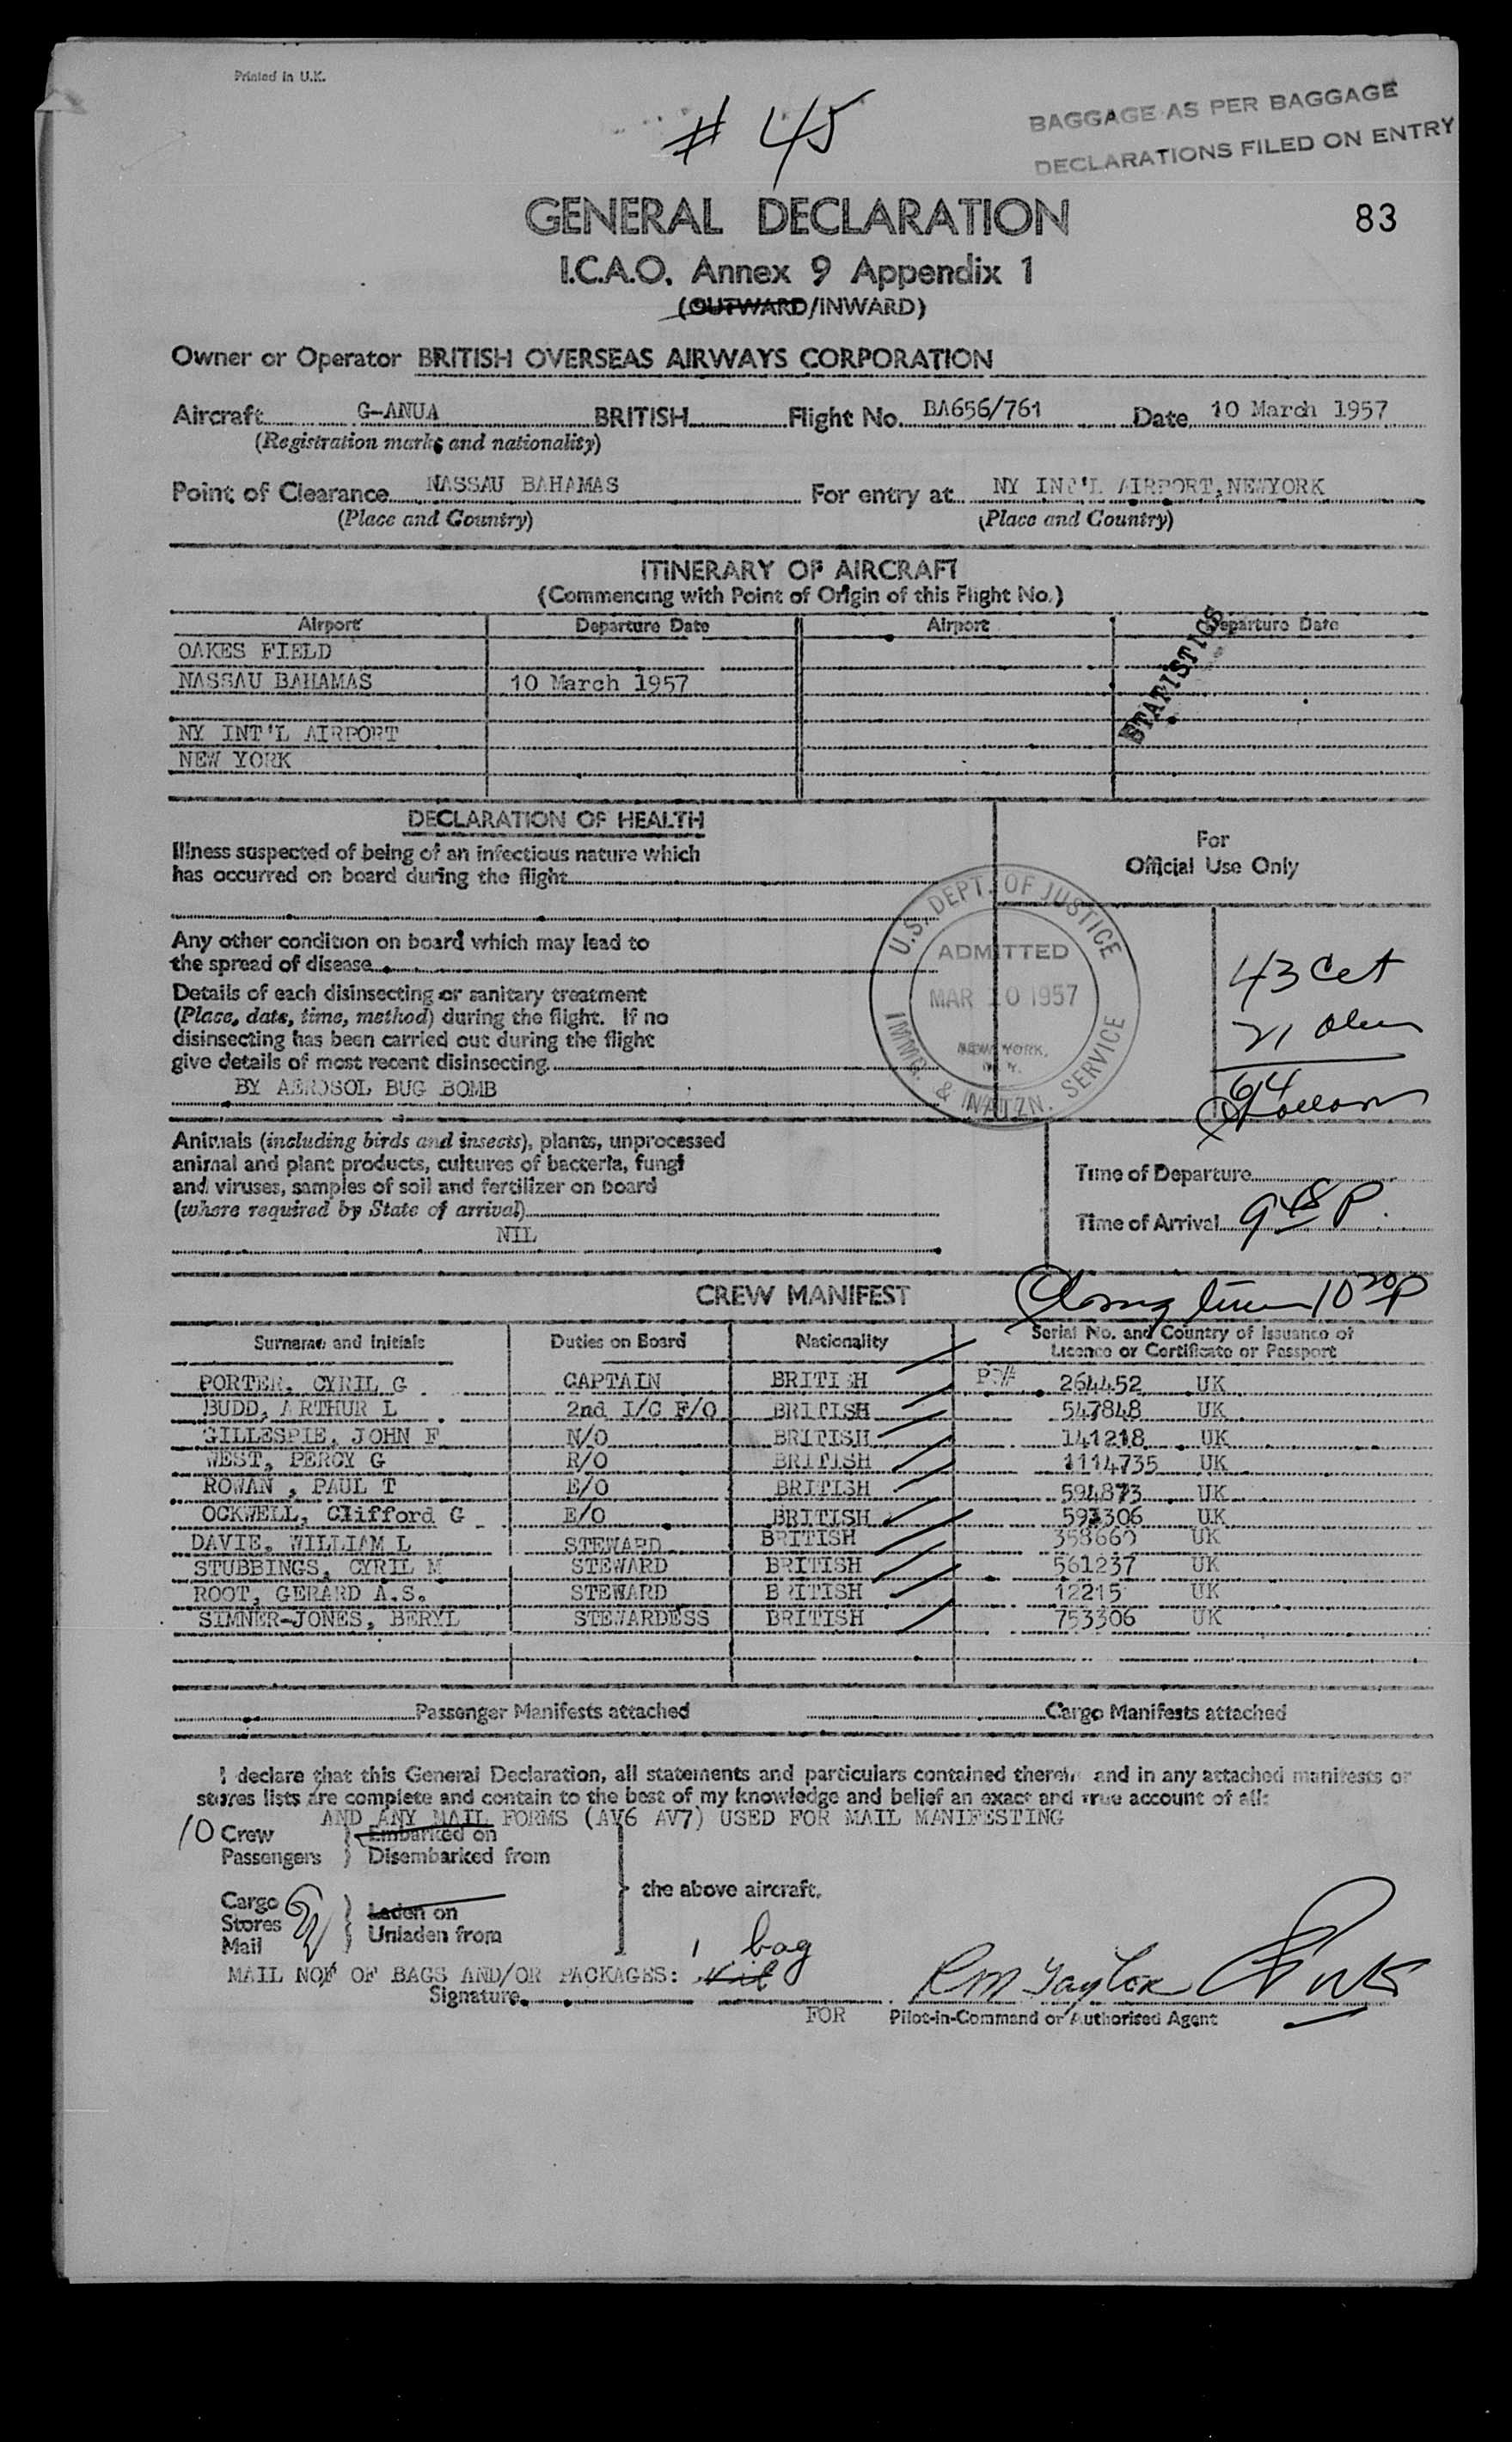 Printed in U.K.
# 45
BAGGAGE AS PER BAGGAGE
DECLARATIONS FILED ON ENTRY
GENERAL DECLARATION
83
I.C.A.O. Annex 9 Appendix 1
(OUTWARD/INWARD)
Owner or Operator BRITISH OVERSEAS AIRWAYS CORPORATION
Aircraft G-ANUA BRITISH Flight No. BA656/761 Date 10 March 1957
(Registration marks and nationality)
Point of Clearance NASSAU BAHAMAS For entry at NY INT'L AIRPORT, NEWYORK
(Place and Country) (Place and Country)
ITINERARY OF AIRCRAFT
(Commencing with Point of Origin of this Flight No.)
Airport Departure Date Airport Departure Date
STATISTICS
OAKES FIELD
NASSAU BAHAMAS 10 March 1957
NY INT'L AIRPORT
NEW YORK
DECLARATION OF HEALTH
For
Official Use Only
Illness suspected of being of an infectious nature which
has occurred on board during the flight
Any other condition on board which may lead to
the spread of disease
Details of each disinsecting or sanitary treatment
(Place, date, time, method) during the flight. If no
disinsecting has been carried out during the flight
give details of most recent disinsecting.
BY AEROSOL BUG BOMB
U.S. DEPT. OF JUSTICE
ADMITTED
MAR 10 1957
NEW YORK,
N.Y.
IMMG. & NATZN. SERVICE
43 Cet
21
64
Animals (including birds and insects), plants, unprocessed
animal and plant products, cultures of bacteria, fungi
and viruses, samples of soil and fertilizer on board
(where required by State of arrival)
NIL
Time of Departure
Time of Arrival 9 48 P.
CREW MANIFEST
Closing time 10 20 P
Surname and Initials Duties on Board Nationality Serial No. and Country of Issuance of
Licence or Certificate or Passport
PORTER, CYRIL G CAPTAIN BRITISH PP# 264452 UK
BUDD, ARTHUR L 2nd I/C F/O BRITISH 547848 UK
GILLESPIE, JOHN F N/O BRITISH 141218 UK
WEST, PERCY G R/O BRITISH 1114735 UK
ROWAN , PAUL T E/O BRITISH 594873 UK
OCKWELL, Clifford G E/O BRITISH 593306 UK
DAVIE, WILLIAM L STEWARD BRITISH 358660 UK
STUBBINGS, CYRIL M STEWARD BRITISH 561237 UK
ROOT, GERARD A.S. STEWARD BRITISH 12215 UK
SIMNER-JONES, BERYL STEWARDESS BRITISH 753306 UK
Passenger Manifests attached Cargo Manifests attached
I declare that this General Declaration, all statements and particulars contained therein and in any attached manifests or
stores lists are complete and contain to the best of my knowledge and belief an exact and true account of all:
AND ANY MAIL FORMS (AV6 AV7) USED FOR MAIL MANIFESTING
10 Crew } Embarked on
Passengers } Disembarked from
the above aircraft.
Cargo
Stores } Laden on
Mail } Unladen from
1 bag
MAIL NO OF BAGS AND/OR PACKAGES: Nil
Signature RM Taylor
FOR Pilot-in-Command or Authorised Agent